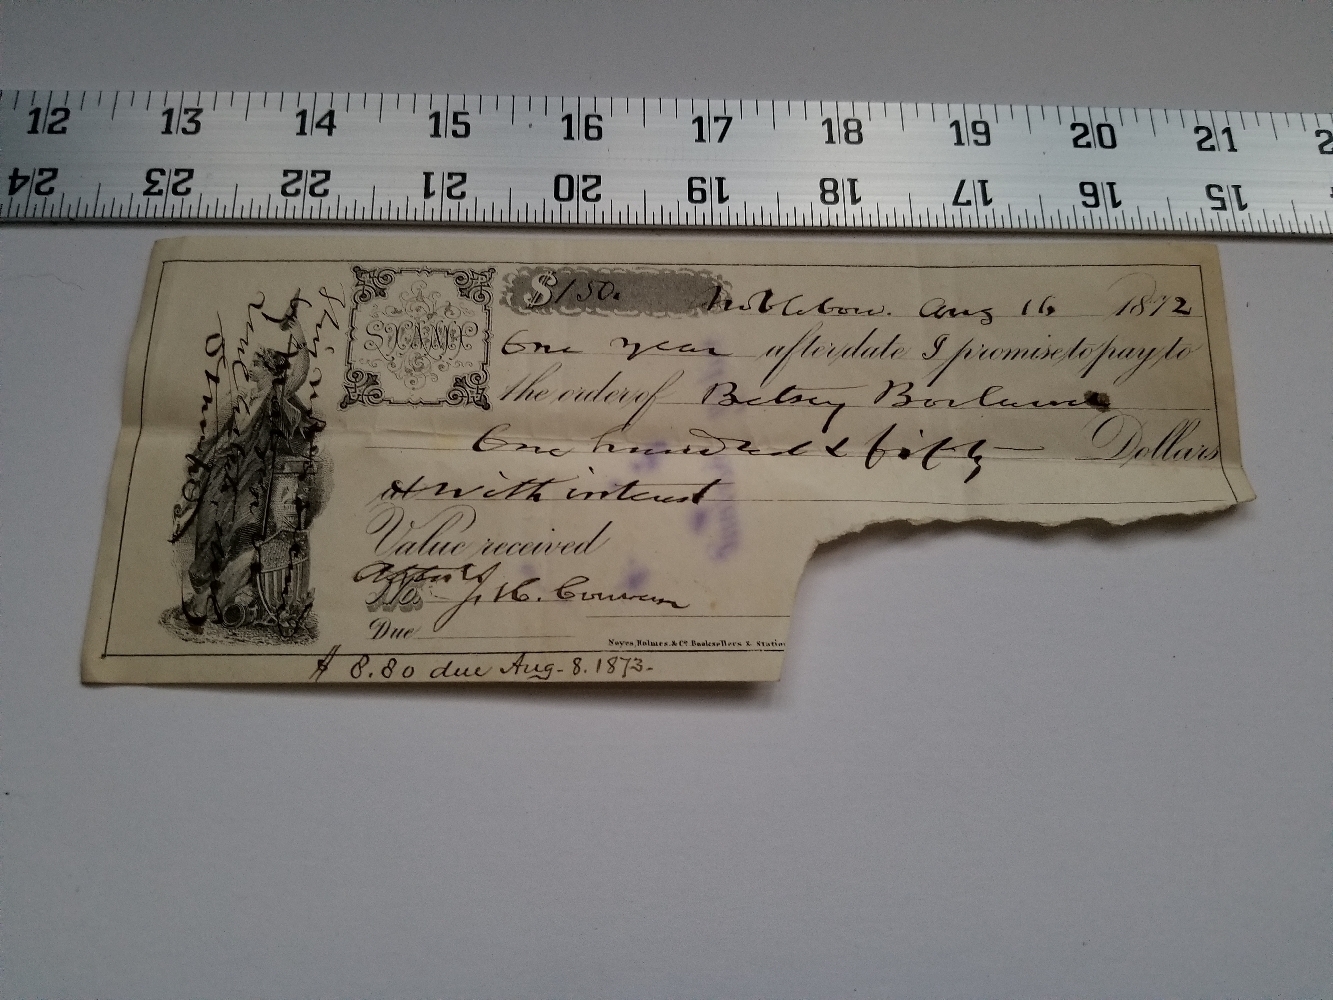 12 13 14 15 16 17 18 19 20 21 2
24 23 22 21 20 19 18 17 16 15
$150. Nobleboro. Aug 16 1872
STAMP
One year after date I promise to pay to
the order of Betsey Borland
One hundred & fifty Dollars
& with interest
Value received
Attest J. H. Converse
No.
Due
Noyes, Holmes & Co. Booksellers & Statio
$ 8.80 due Aug. 8. 1873.